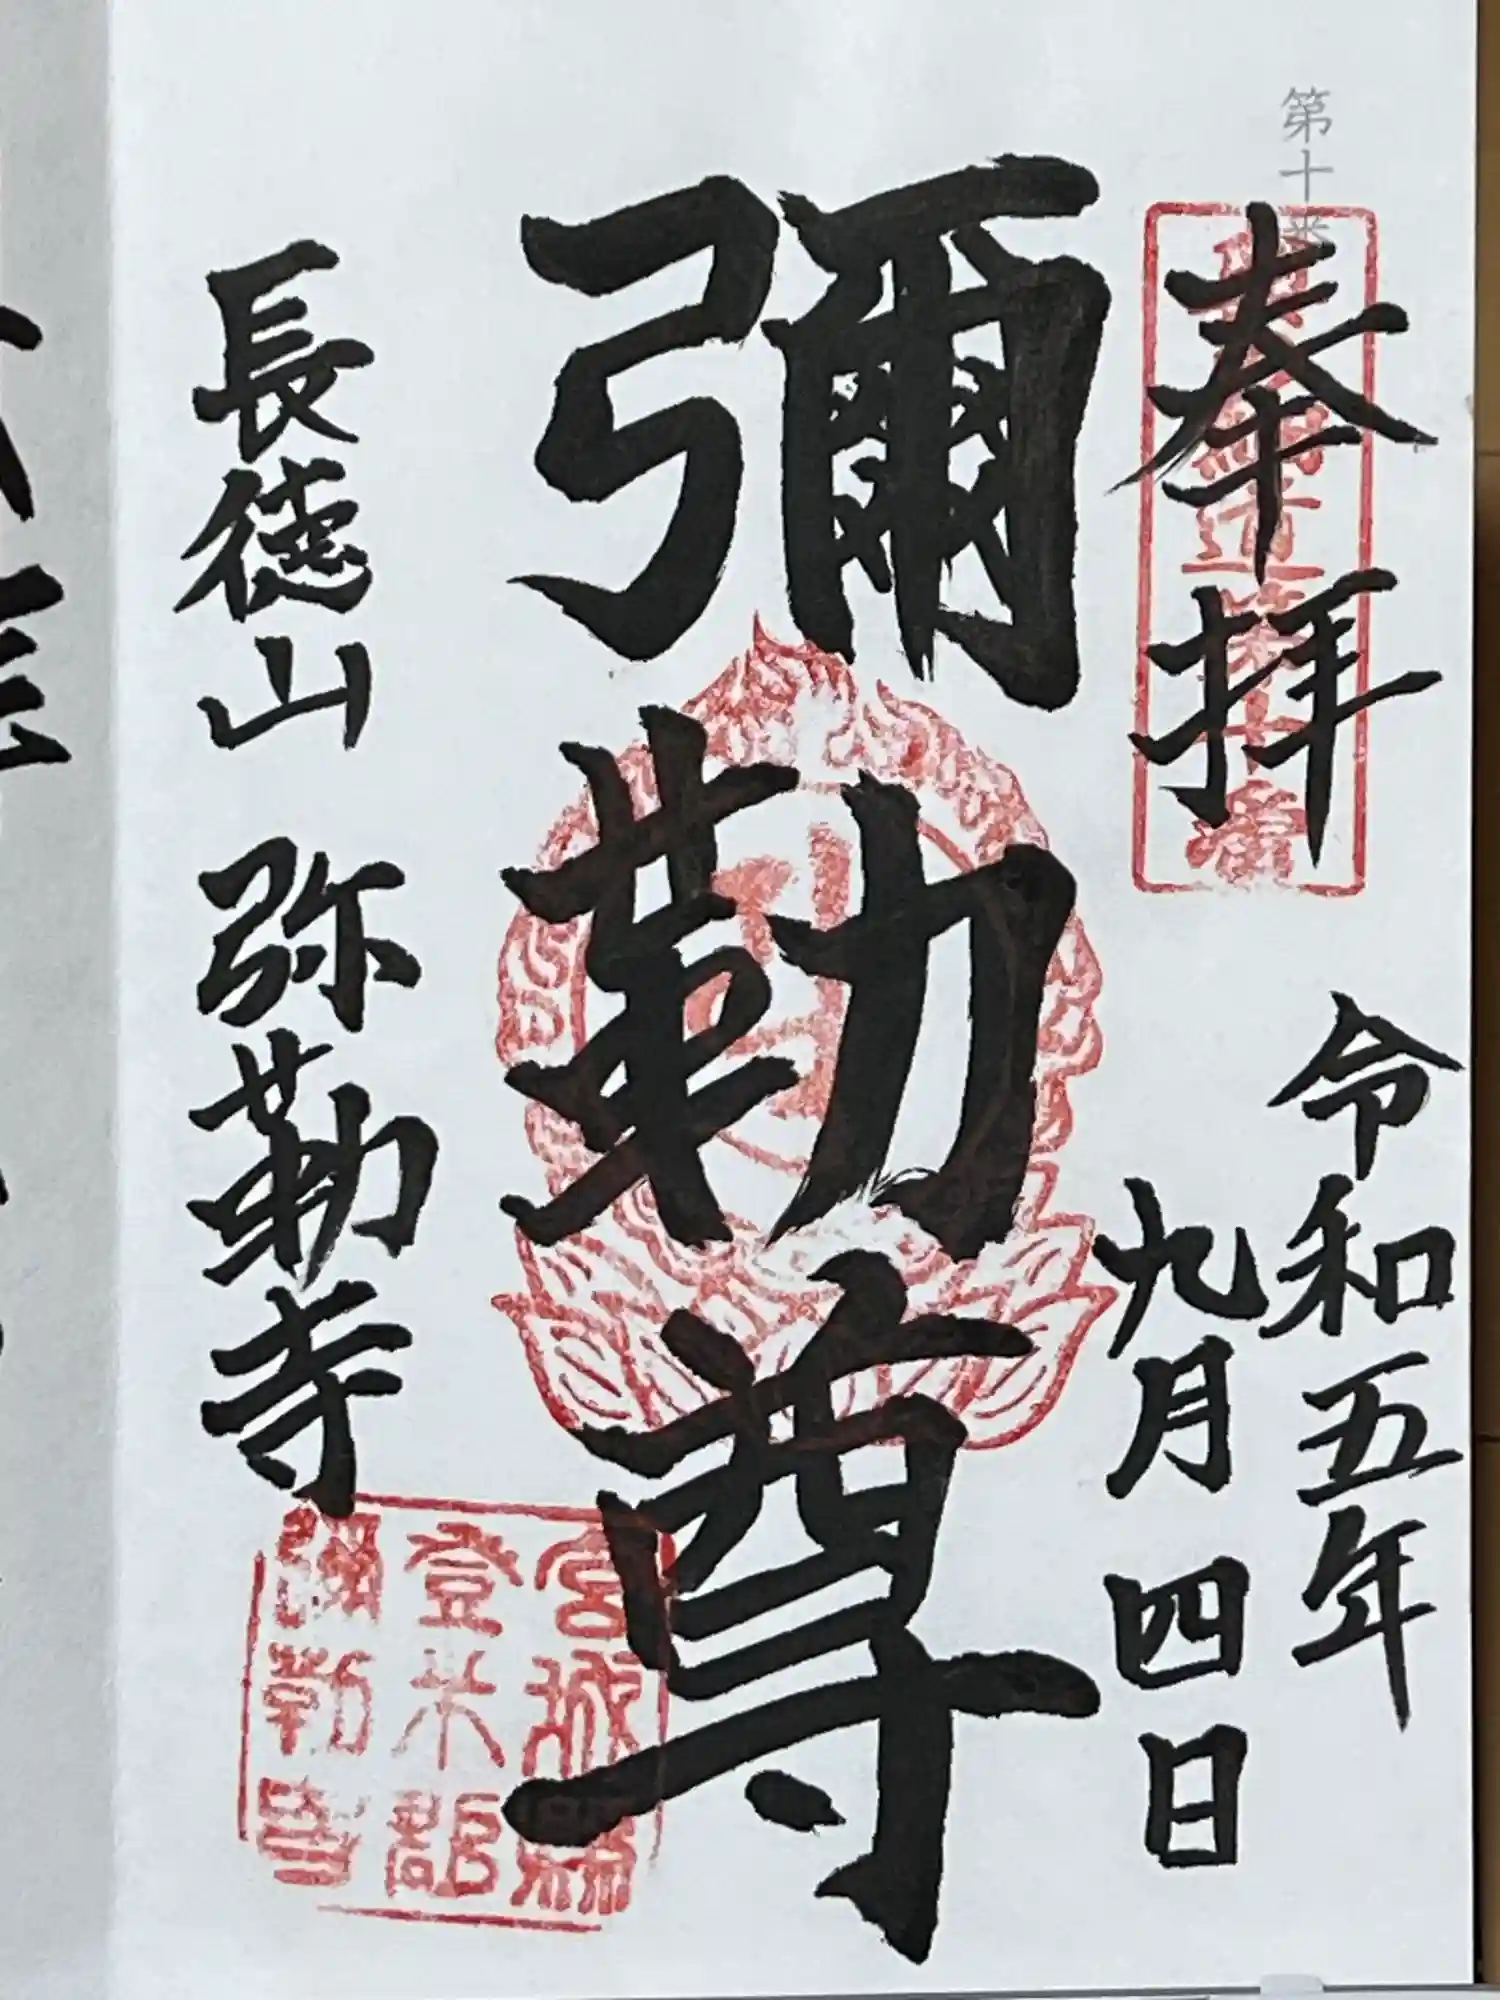 第十番
奉拝
令和五年
九月四日
彌勒尊
長徳山 弥勒寺
宮城縣
登米郡
彌勒寺